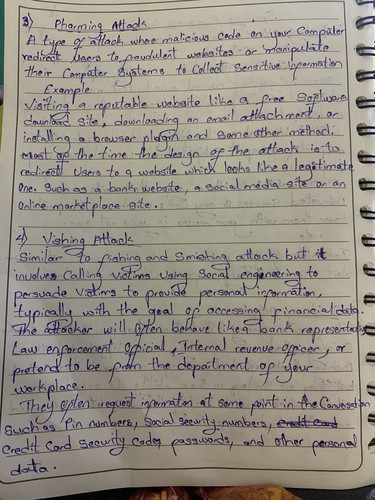 3) Pharming Attack
A type of attack where malicious code on your Computer
redirect users to fraudulent websites or manipulate
their Computer Systems to Collect Sensitive Information
Example
Visiting a reputable website like a free Software
download site, downloading an email attachment, or
installing a browser plugin and some other method.
Most of the time the design of the attack is to
redirect Users to a website which looks like a legitimate
One. Such as a bank website, a social media site or an
Online marketplace site.
4) Vishing Attack
Similar to fishing and Smishing attack but it
involves Calling Victims Using Social engineering to
persuade Victims to provide personal information,
typically with the goal of accessing financial data.
The attacker will Often behave like a bank representative
Law enforcement Official, Internal revenue Officer, or
pretend to be from the department of your
workplace.
They often request information at some point in the Conversation
Such as Pin numbers, Social security numbers, credit card
Credit Card Security codes, passwords, and other personal
data.